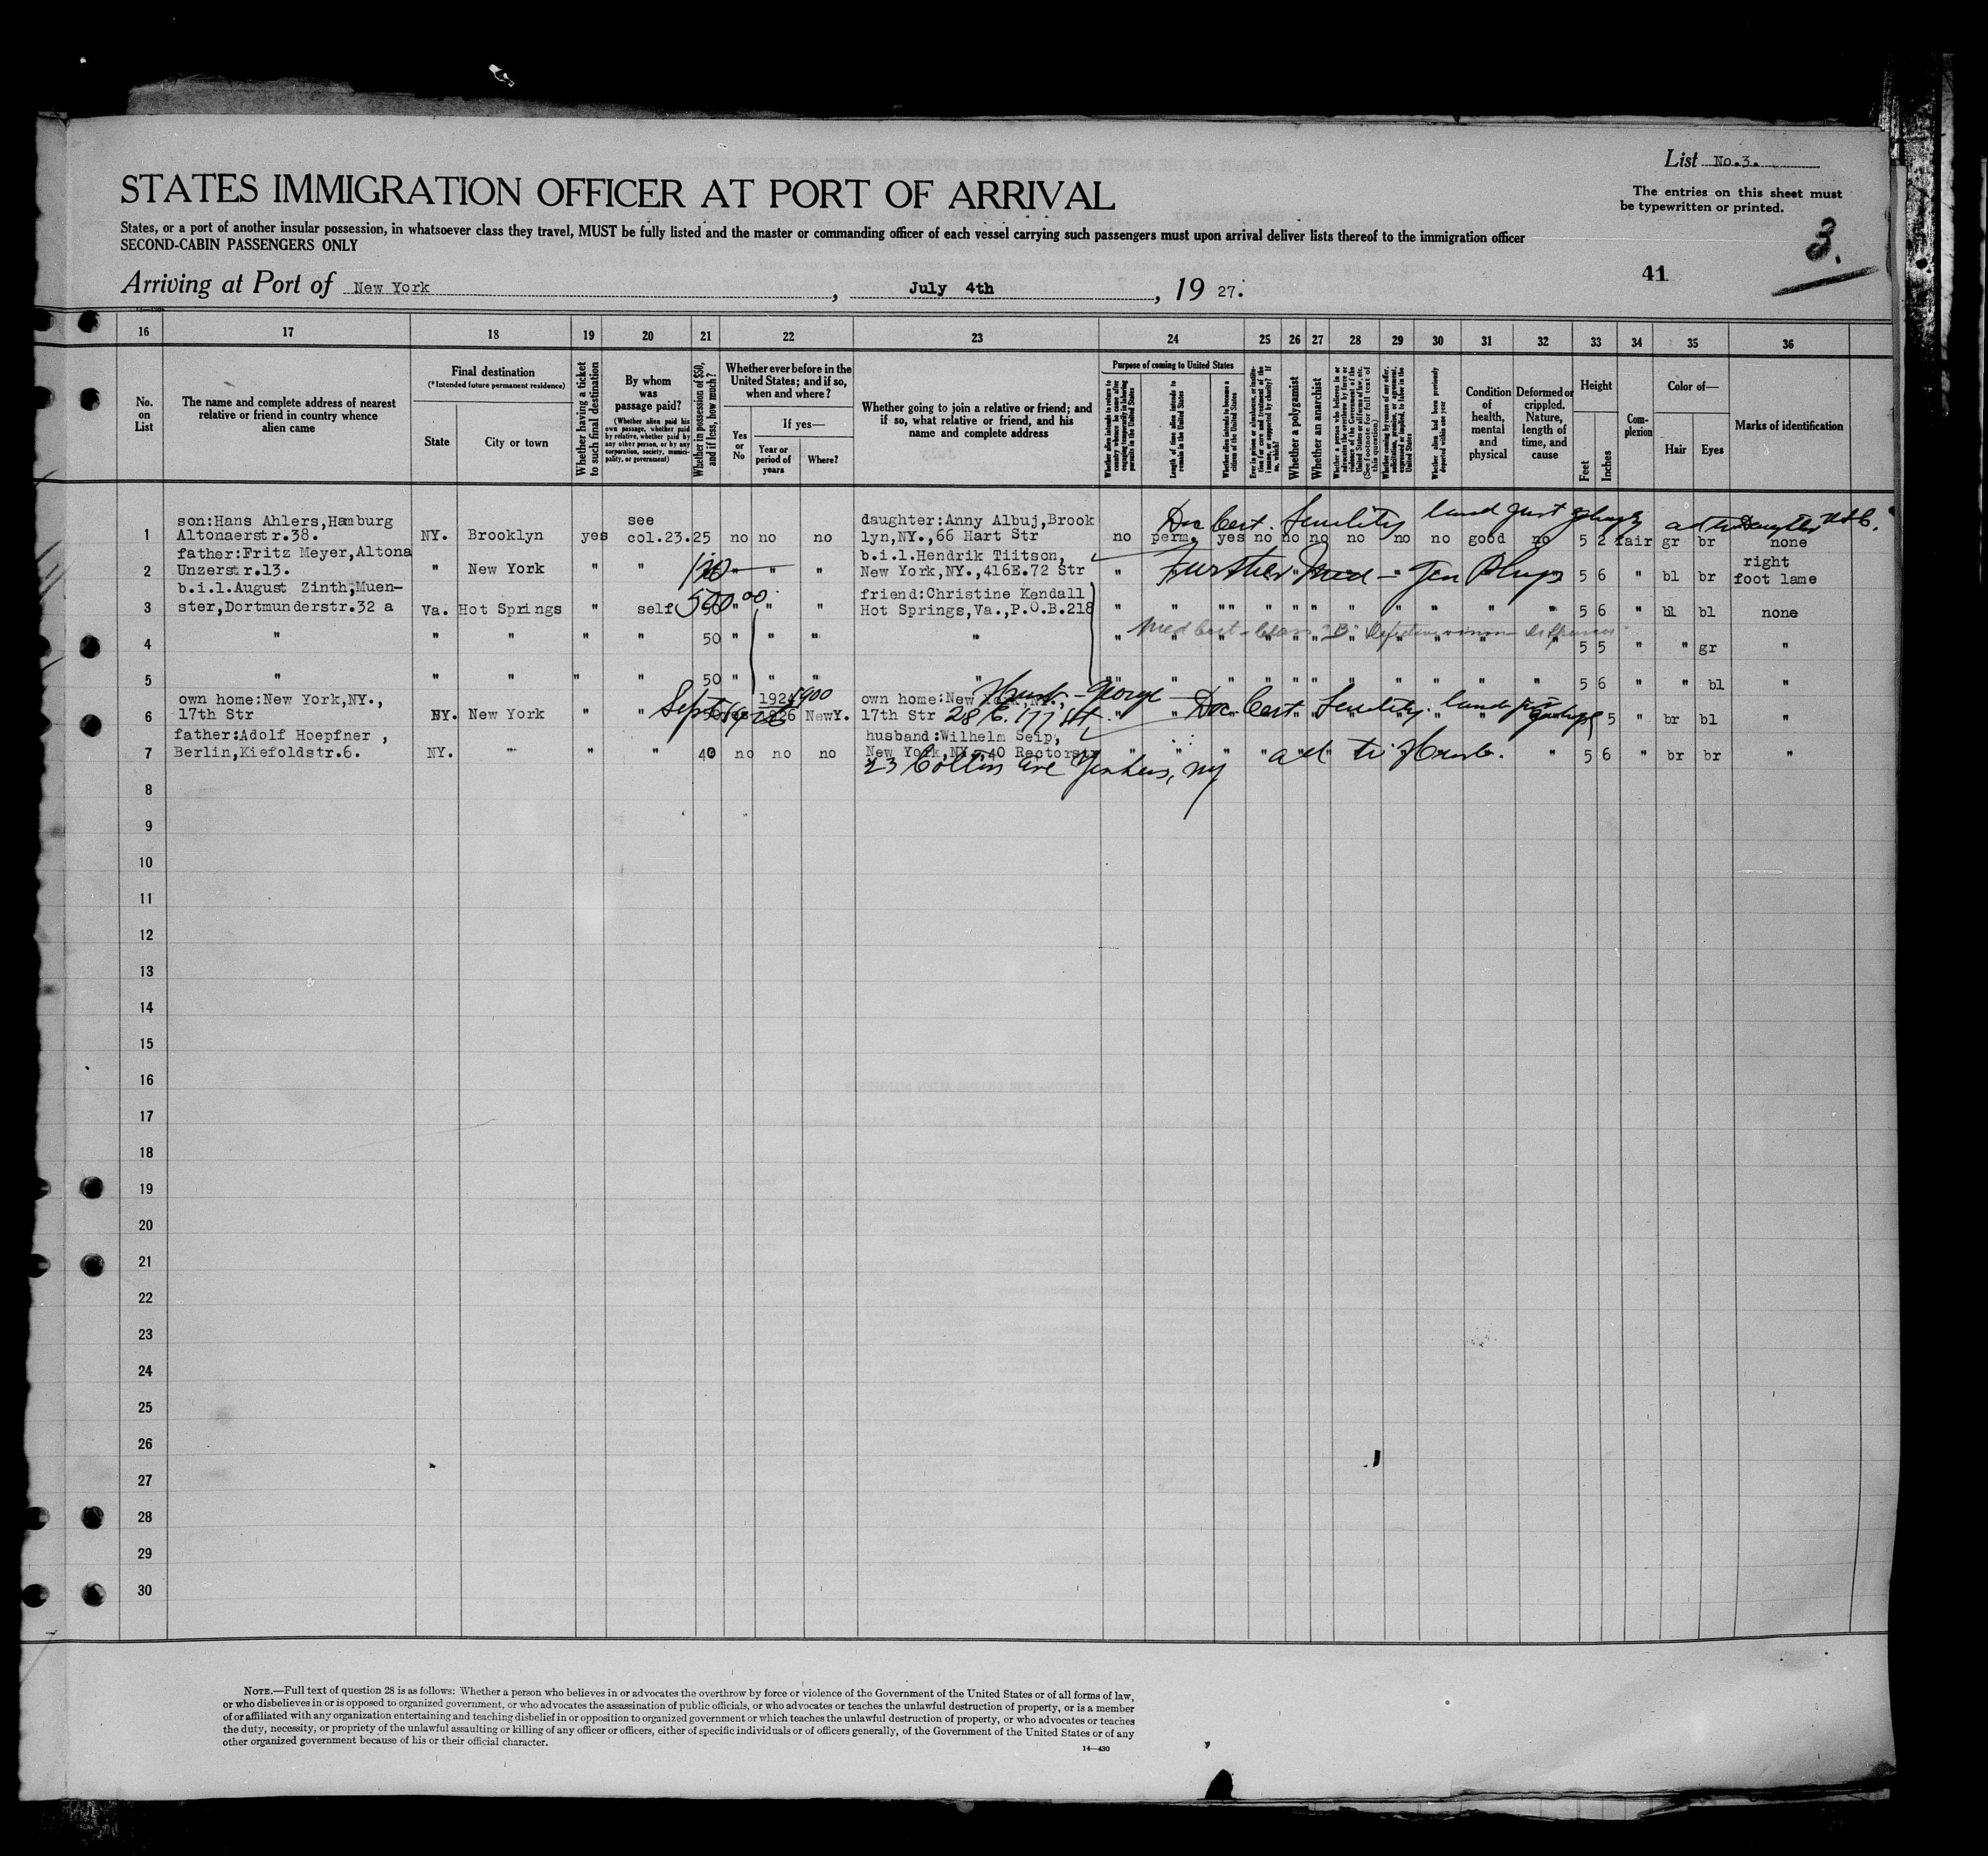 List No.3.
STATES IMMIGRATION OFFICER AT PORT OF ARRIVAL
The entries on this sheet must
be typewritten or printed.
States, or a port of another insular possession, in whatsoever class they travel, MUST be fully listed and the master or commanding officer of each vessel carrying such passengers must upon arrival deliver lists thereof to the immigration officer
SECOND-CABIN PASSENGERS ONLY
3.
41
Arriving at Port of New York, July 4th, 19 27.
16 17 18 19 20 21 22 23 24 25 26 27 28 29 30 31 32 33 34 35 36
No. on List
The name and complete address of nearest relative or friend in country whence alien came
Final destination
(*Intended future permanent residence)
State
City or town
Whether having a ticket to such final destination
By whom was passage paid?
(Whether alien paid his own passage, whether paid by relative, whether paid by any other person, or by any corporation, society, municipality, or government)
Whether in possession of $50, and if less, how much?
Whether ever before in the United States; and if so, when and where?
Yes or No
If yes—
Year or period of years
Where?
Whether going to join a relative or friend; and if so, what relative or friend, and his name and complete address
Purpose of coming to United States
Whether alien intends to return to country whence he came after engaging temporarily in laboring pursuits in the United States
Length of time alien intends to remain in the United States
Whether alien intends to become a citizen of the United States
Ever in prison or almshouse, or institution for care and treatment of the insane, or supported by charity? If so, which?
Whether a polygamist
Whether an anarchist
Whether a person who believes in or advocates the overthrow by force or violence of the Government of the United States or all forms of law, etc. (See footnote for full text of this question)
Whether coming by reason of any offer, solicitation, promise, or agreement, expressed or implied, to labor in the United States
Whether alien had been previously deported within one year
Condition of health, mental and physical
Deformed or crippled. Nature, length of time, and cause
Height
Feet
Inches
Complexion
Color of—
Hair
Eyes
Marks of identification
1 son:Hans Ahlers,Hamburg Altonaerstr.38. NY. Brooklyn yes see col.23. 25 no no no daughter:Anny Albuj,Brook lyn,NY.,66 Hart Str no perm. yes no no no no no no good no 5 2 fair gr br none
Doc Cert. Senility land
2 father:Fritz Meyer,Altona Unzerstr.13. " New York " " " " " b.i.l.Hendrik Tiitson, New York,NY.,416E.72 Str " " " " 5 6 " bl br right foot lame
Further Med -
3 b.i.l.August Zinth,Muen- ster,Dortmunderstr.32 a Va. Hot Springs " self 50 " " " friend:Christine Kendall Hot Springs,Va.,P.O.B.218 " " " " " " " " " " " " 5 6 " bl bl none
500.00
4 " " " " " 50 " " " " " " " " " " " " " " " " 5 5 " " gr "
Med Cert - Class "B" Defective vision
5 " " " " " 50 " " " " " " " " " " " " " " " " 5 6 " " bl "
6 own home:New York,NY., 17th Str NY. New York " " yes 1924 1926 NewY. own home:New York,NY., 17th Str " " " " " " " " " " 5 " br bl "
Husb - George
28 E. 177 St.
Doc Cert Senility. land
7 father:Adolf Hoepfner , Berlin,Kiefoldstr.6. NY. " " " 40 no no no husband:Wilhelm Seip, New York,NY.,40 Rectorstr " " " " " " 5 6 " br br "
adm to Husb.
23 Collins ave Yonkers, NY
8
9
10
11
12
13
14
15
16
17
18
19
20
21
22
23
24
25
26
27
28
29
30
NOTE.—Full text of question 28 is as follows: Whether a person who believes in or advocates the overthrow by force or violence of the Government of the United States or of all forms of law,
or who disbelieves in or is opposed to organized government, or who advocates the assassination of public officials, or who advocates or teaches the unlawful destruction of property, or is a member
of or affiliated with any organization entertaining and teaching disbelief in or opposition to organized government or which teaches the unlawful destruction of property, or who advocates or teaches
the duty, necessity, or propriety of the unlawful assaulting or killing of any officer or officers, either of specific individuals or of officers generally, of the Government of the United States or of any
other organized government because of his or their official character.
14—430